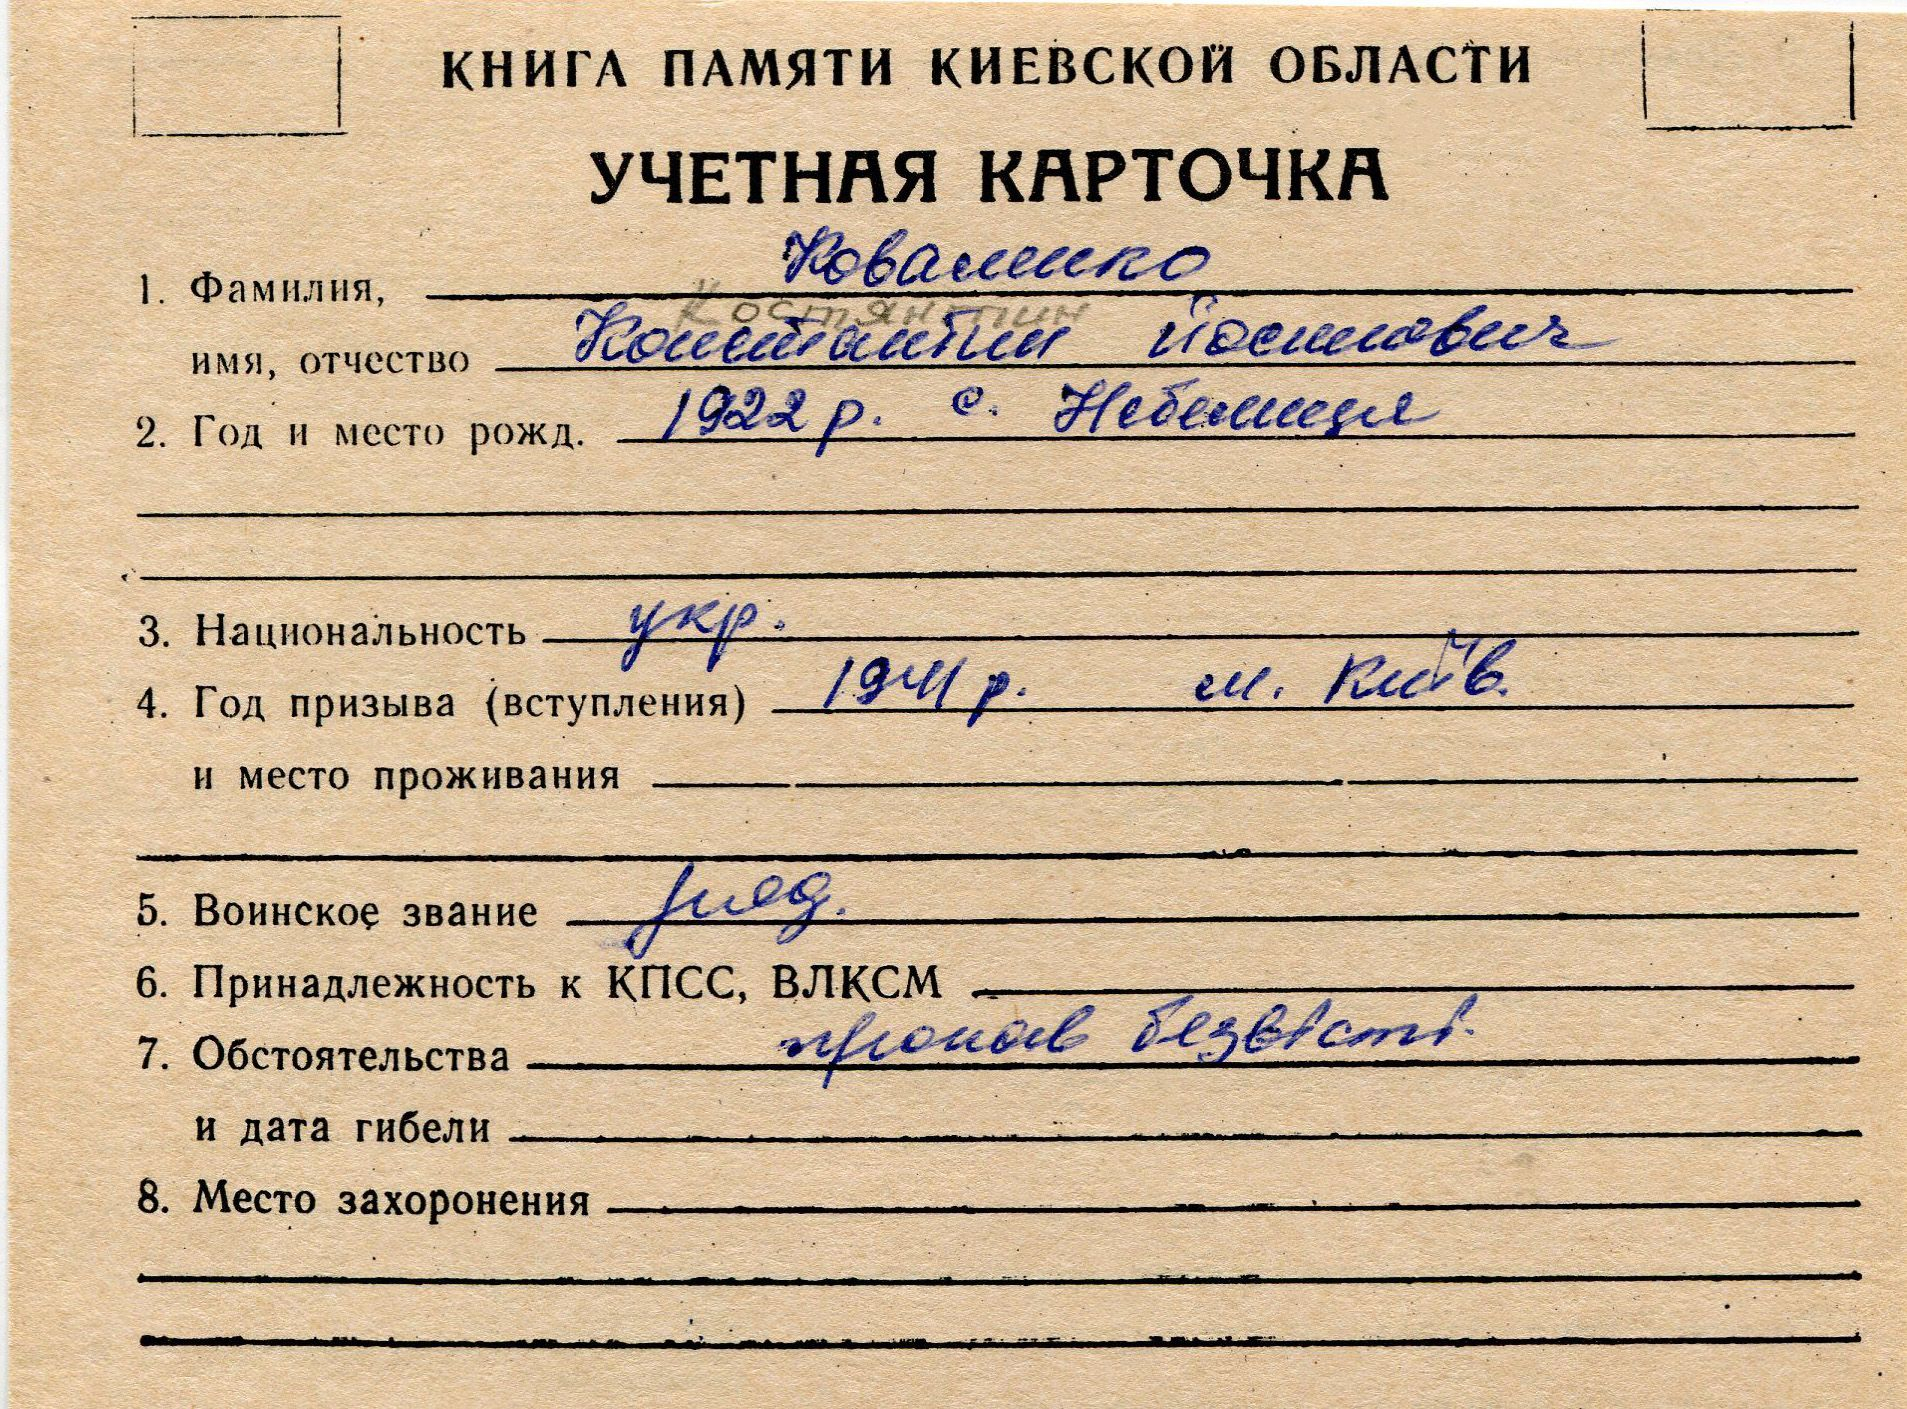 КНИГА ПАМЯТИ КИЕВСКОЙ ОБЛАСТИ
УЧЕТНАЯ КАРТОЧКА
1. Фамилия, Коваленко
Костянтин
имя, отчество Константин Йосипович
2. Год и место рожд. 1922 р. с. Небелиця
3. Национальность укр.
4. Год призыва (вступления) 1941 р. м. Київ.
и место проживания
5. Воинское звание ряд.
6. Принадлежность к КПСС, ВЛКСМ
7. Обстоятельства пропав безвісті.
и дата гибели
8. Место захоронения